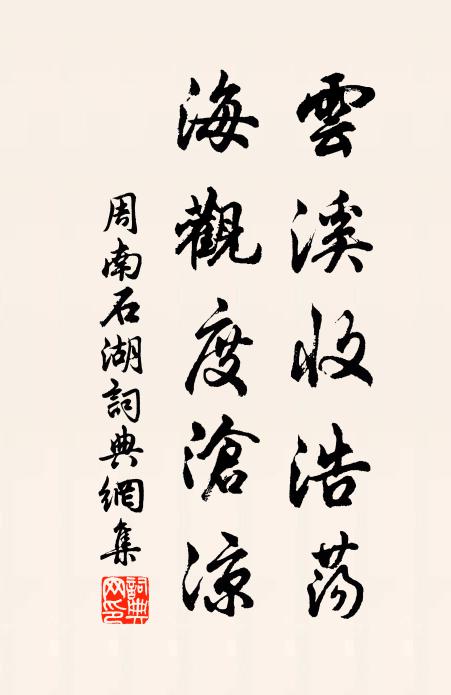 雲溪收浩荡
海觀度滄涼
周南石湖詞典網集
詞典网印